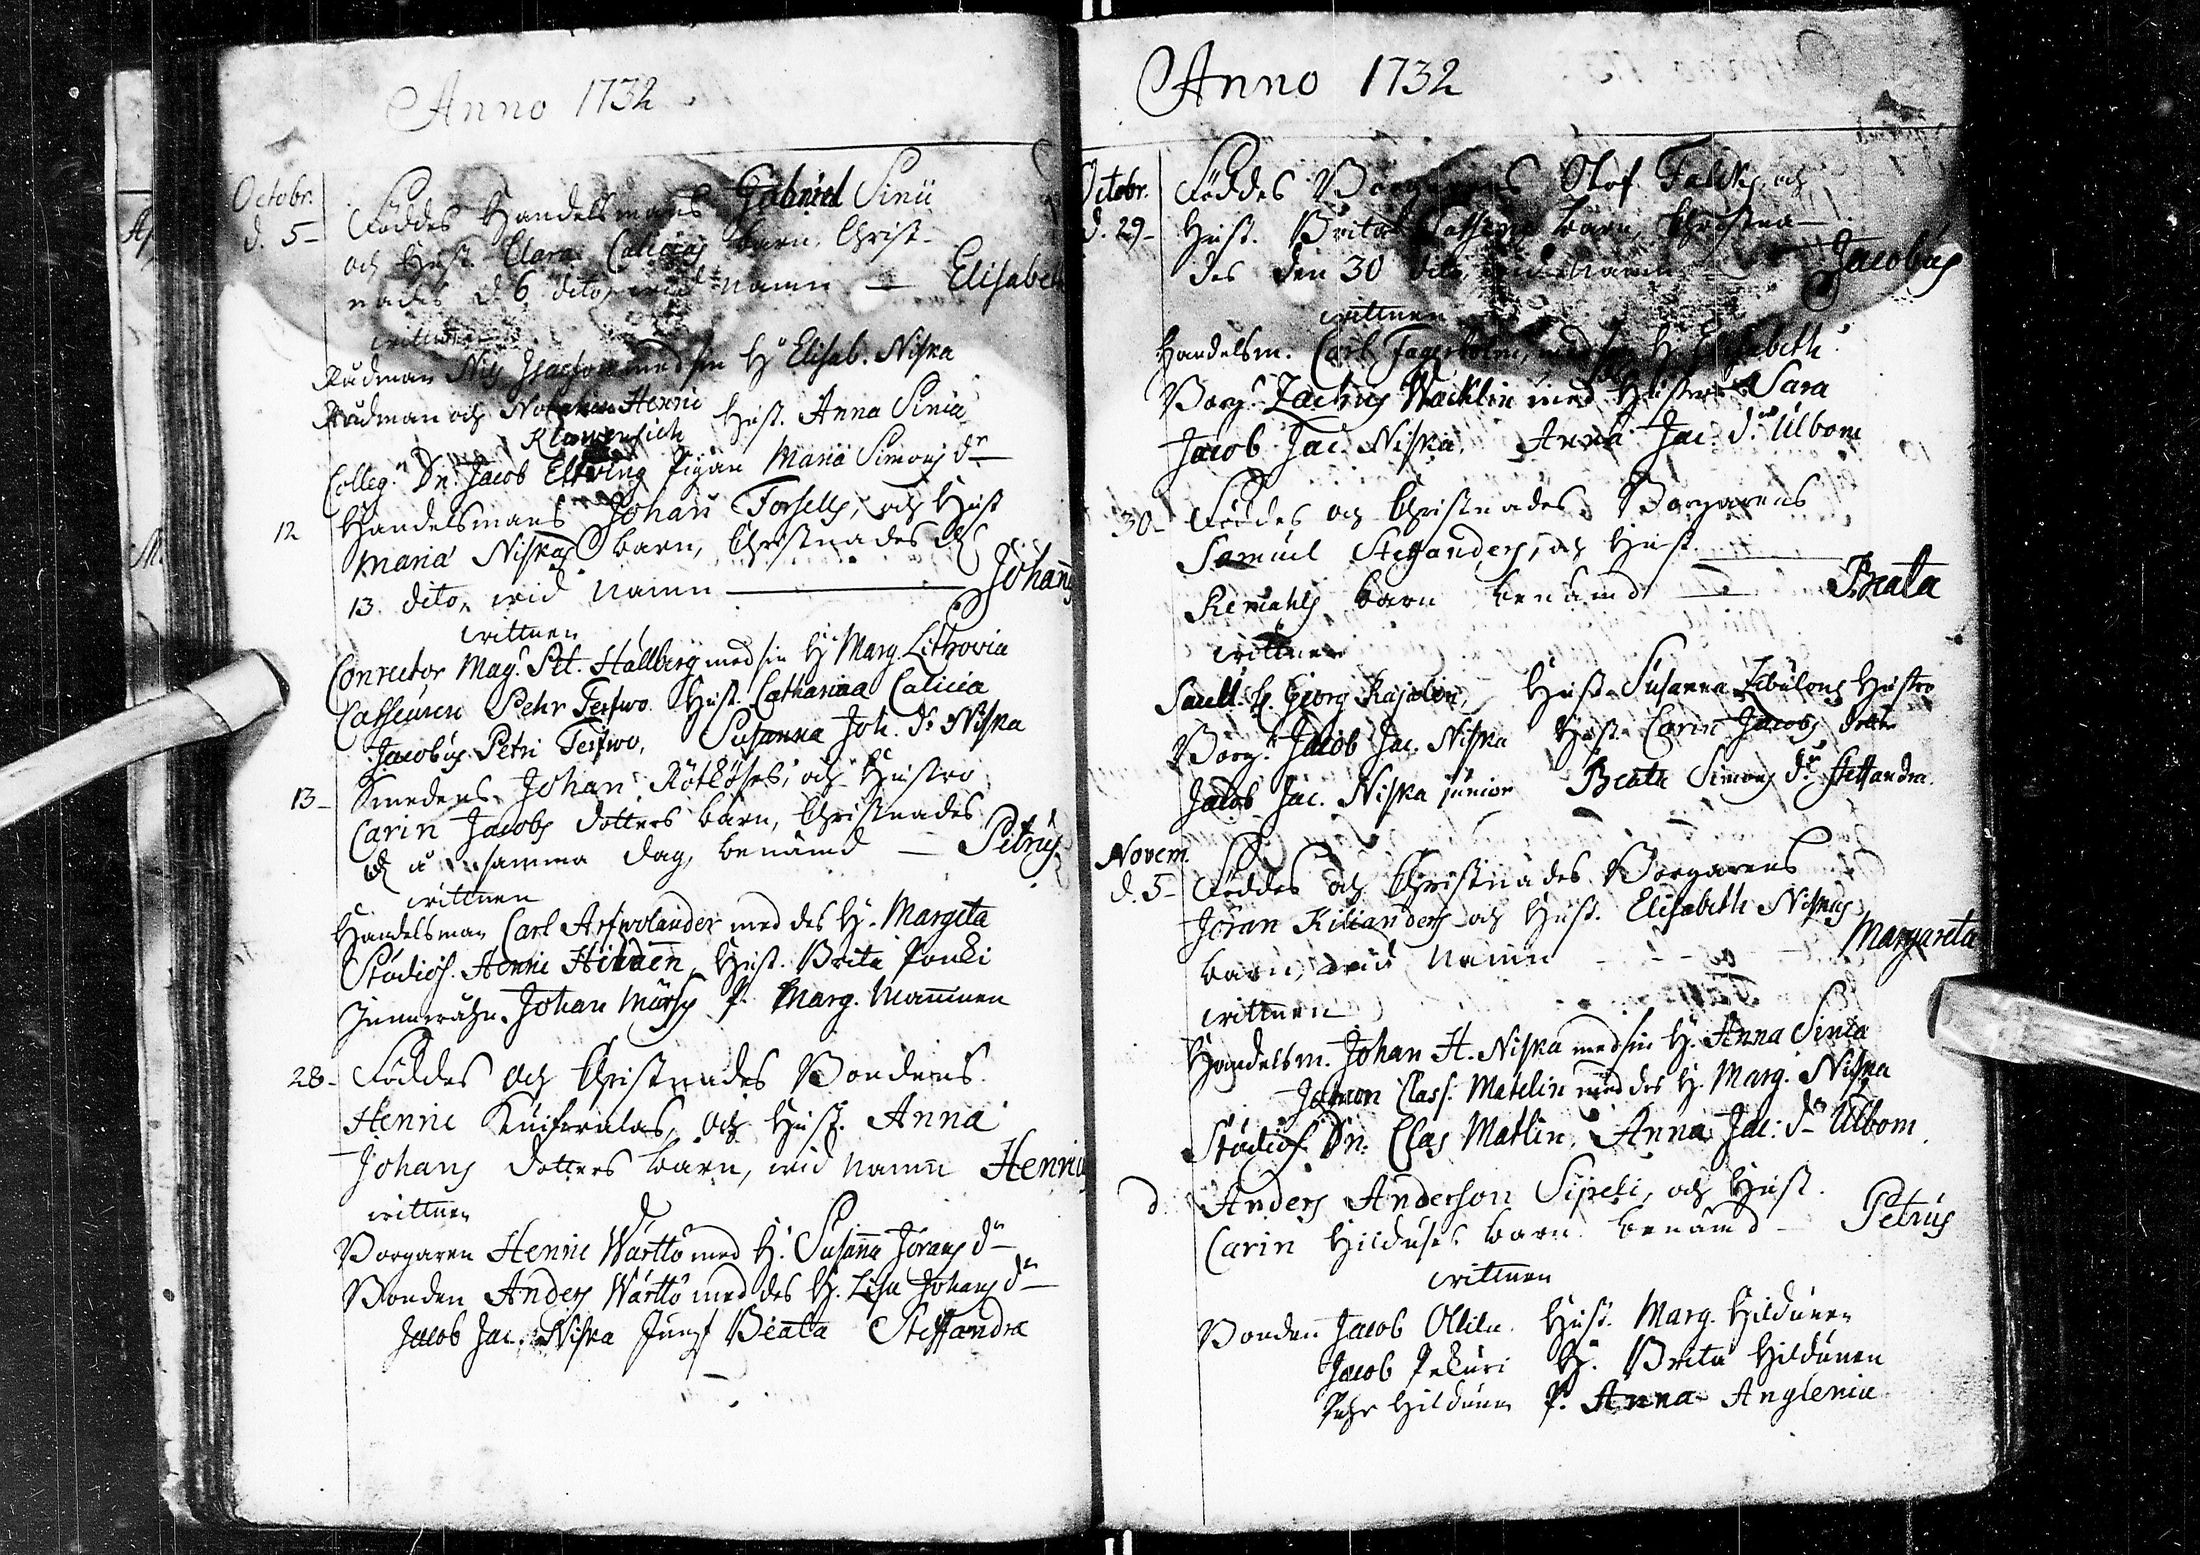 Anno 1732
Octobr. Föddes Handelsmans Gabriel Sinii
d. 5 och Hust. Clara Calicias barn, Christ-
nades d. 6 dito, wid namn — Elisabeth
wittnen
Rådman Nils Isacson med sin H. Elisab. Niska
Rådman och Notarien Henric Hust. Anna Sinia
Colleg. Dn. Jacob Pigan Maria Simons dr
12 Handelsmans Johan Forsells, och Hust
Maria Niskas barn, Christnades d.
13. dito, wid namn — Johan
wittnen
Conrector Mag. Pet. Hällberg med sin H. Marg. Lithovia
Casseuren Pehr Terfwo Hust. Catharina Calicia
Jacobus Petri Terfwo, Susanna Joh. dr Niska
13 Smedens Johan och Hustro
Carin Jacobs dotters barn, Christnades
samma dag, benämd — Petrus
wittnen
Handelsman Carl Arfwolander med des H. Margeta
Studios. Henric Hust. Brita
Johan P. Marg. Mamminen
28 Föddes och Christnades Bondens
Henric och Hust. Anna
Johans dotters barn, wid namn Henric
wittnen
Borgaren Henric Wärttö med H. Susanna Jörans dr
Bonden Anders Wärttö med des H. Lisa Johans dr
Jacob Jac. Niska Jungf Beata Steffandra
Anno 1732
Octobr. Föddes Borgarens Olof Falcks, och
d. 29 Hust. Brita barn, Christna-
des den 30 dito, wid namn Jacobus
wittnen
Handelsm. Carl Fagerholm, med sin H. Elisabeth
Borg. Zachris Wacklin med Hustro Sara
Jacob Jac. Niska, Anna Jac. dr Ulbom
30 Föddes och Christnades Borgarens
Samuel Steffanders, och Hust.
barn benämd — Beata
wittnen
Georg Kajalen, Hust. Susanna Hustro
Borg. Jacob Jac. Niska Hust. Carin Jacobs dotter
Jacob Jac. Niska junior Beata Simons dr Steffandra
Novem.
d. 5 Föddes och Christnades Borgarens
Jöran Kilianders och Hust. Elisabeth Niskas
barn, wid namn - - - Margareta
wittnen
Handelsm. Johan H. Niska med sin H. Anna Sinia
Clas. Matelin med des H. Marg. Niska
Studios. Dn. Clas Matlin, Anna Jac. dr Ulbom
d Anders Anderson och Hust.
Carin barn benämd — Petrus
wittnen
Bonden Jacob Hust. Marg. Hildunen
Jacob Pekuri H. Brita Hildunen
Pehr Hildunen P. Anna Anglenia